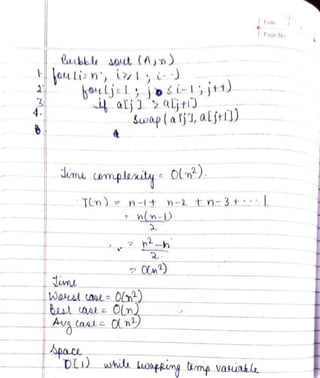 Date
Page No.
Bubble sort (A,n)
1. for(i=n; i≥1; i--)
2. for(j=1; j≤i-1; j++)
3. if a[j] > a[j+1]
4. swap(a[j], a[j+1])
Time complexity = O(n²).
T(n) = n-1 + n-2 + n-3 + ... 1
= n(n-1)
2
= n²-n
2
= O(n²)
Time
Worst case = O(n²)
Best case = O(n)
Avg case = O(n²)
Space
O(1) while swapping temp variable